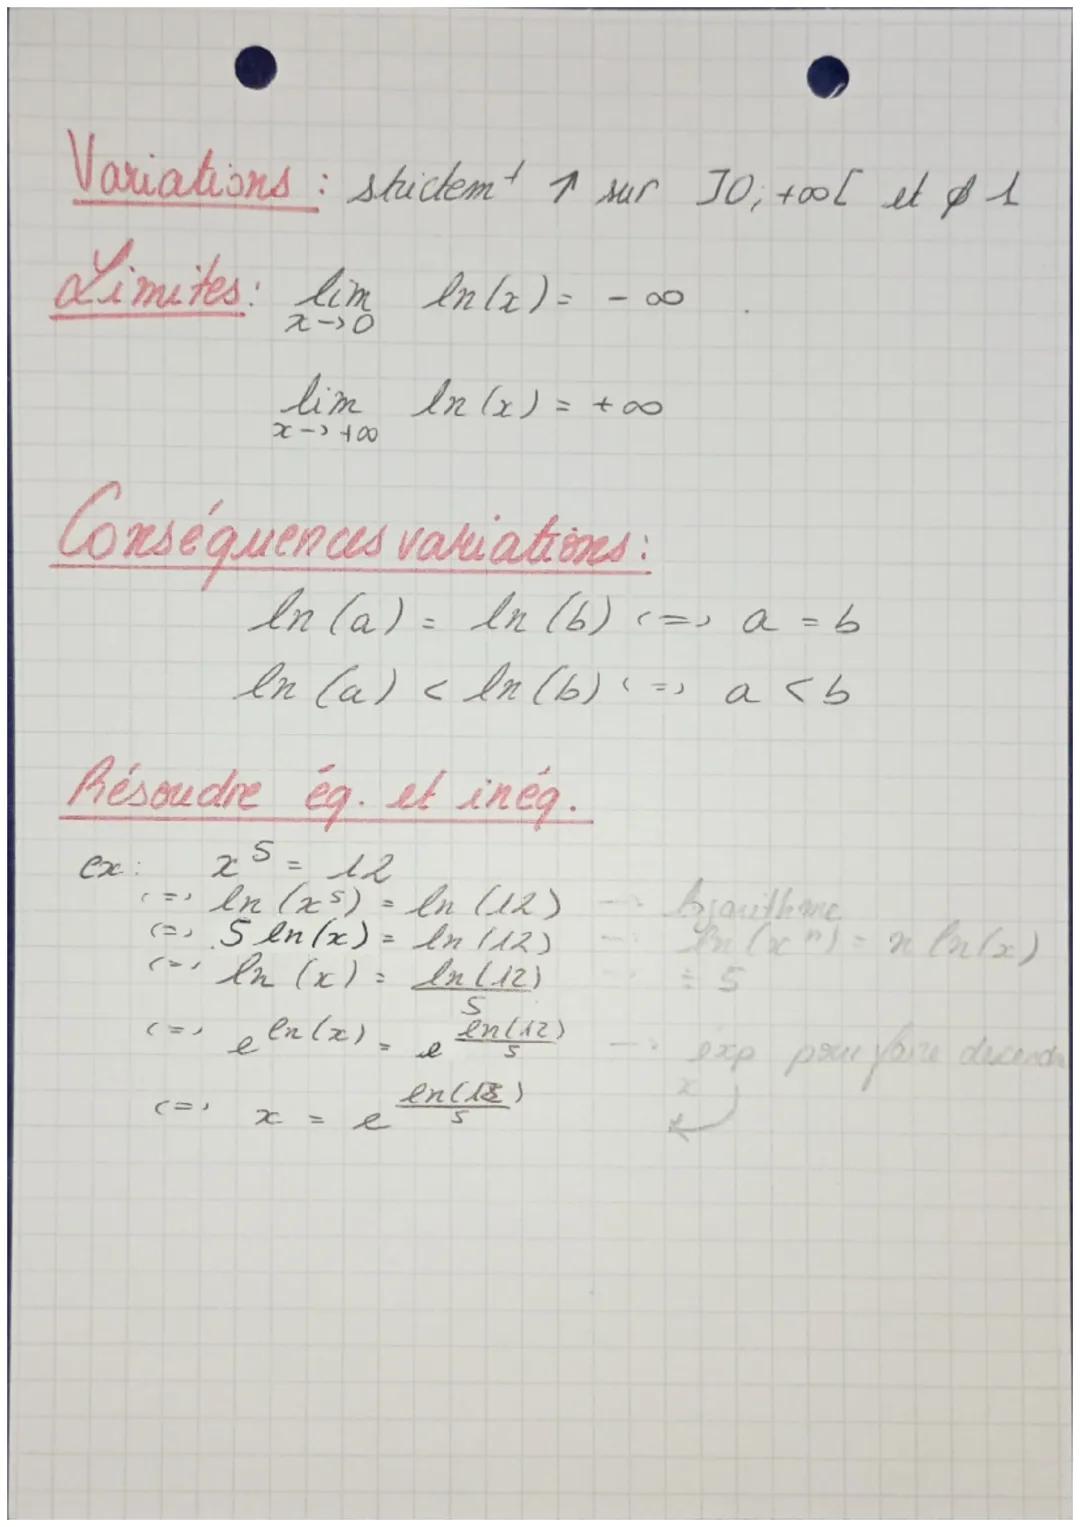 Variations : strictemt ↑ sur ]0; +∞[ et ∮ 1
Limites: lim ln(x) = - ∞
x->0
lim ln(x) = +∞
x-> +∞
Conséquences variations:
ln (a) = ln (b) <=> a = b
ln (a) < ln (b) <=> a < b
Résoudre éq. et inéq.
ex: x^5 = 12
<=> ln (x^5) = ln (12) -> logarithme
<=> 5 ln(x) = ln (12) -> ln(x^n) = n ln(x)
<=> ln (x) = ln(12)/5 -> ÷ 5
<=> e^ln(x) = e^(ln(12)/5) -> exp pour faire descendre
x
<=> x = e^(ln(12)/5)